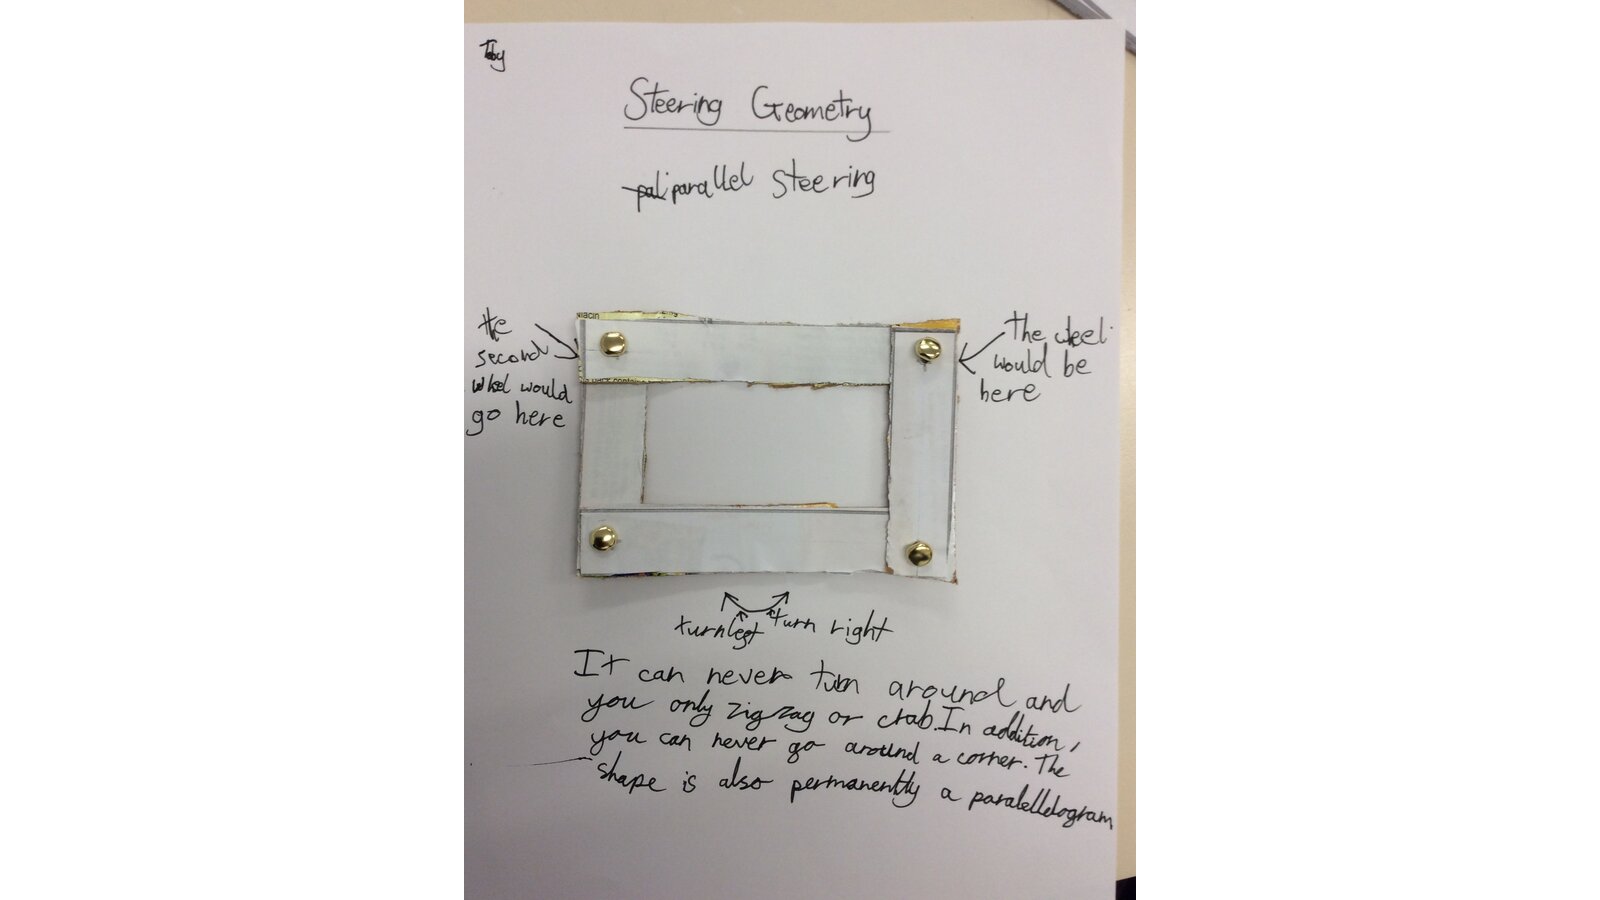 Toby
Steering Geometry
pal parallel Steering
the
second
wheel would
go here
The wheel
would be
here
niacin
turn left
turn right
It can never turn around and
you only zig zag or crab. In addition,
you can never go around a corner. The
shape is also permanently a paralellelogram